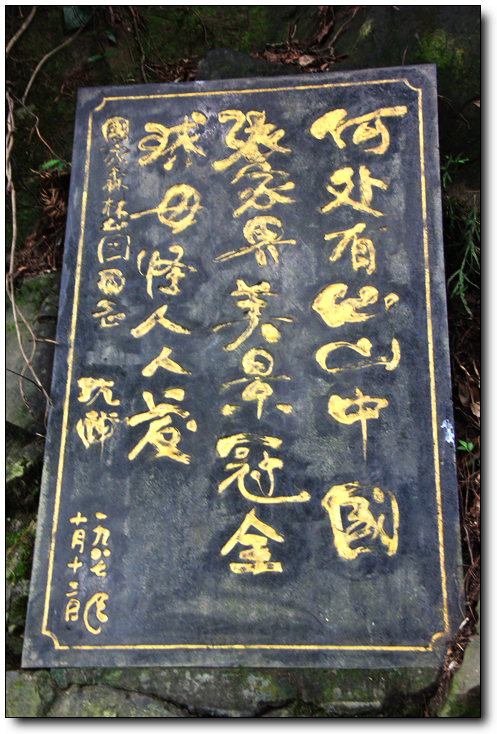 何处有此山中國
張家界美景冠全
球毋怪人人爱
國家森林园留念
沈醉
一九八七年
十月十二日